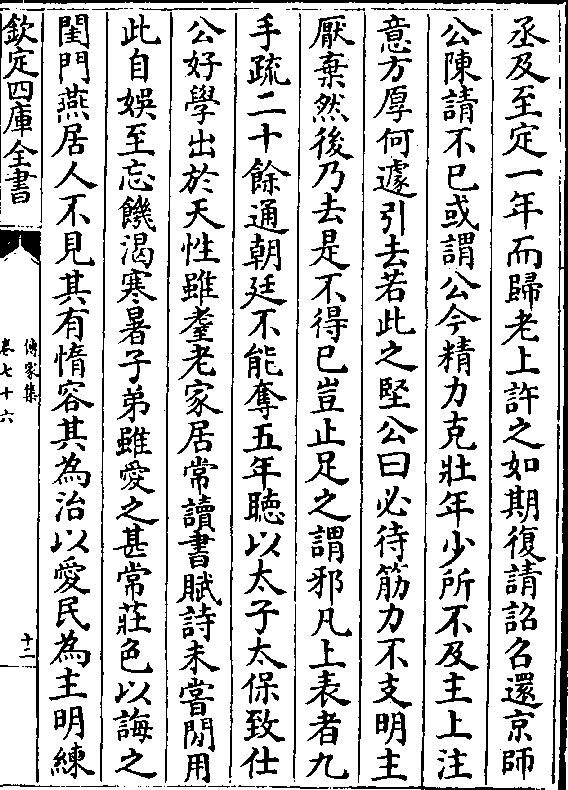 丞及至定一年而歸老上許之如期復請詔召還京師
公陳請不已或謂公今精力克壯年少所不及主上注
意方厚何遽引去若此之堅公曰必待筋力不支明主
厭棄然後乃去是不得已豈止足之謂邪凡上表者九
手疏二十餘通朝廷不能奪五年聽以太子太保致仕
公好學出於天性雖耋老家居常讀書賦詩未甞閒用
此自娛至忘饑渴寒暑子弟雖愛之甚常莊色以誨之
閨門燕居人不見其有惰容其為治以愛民為主明練
欽定四庫全書
傳家集
卷七十六
十二